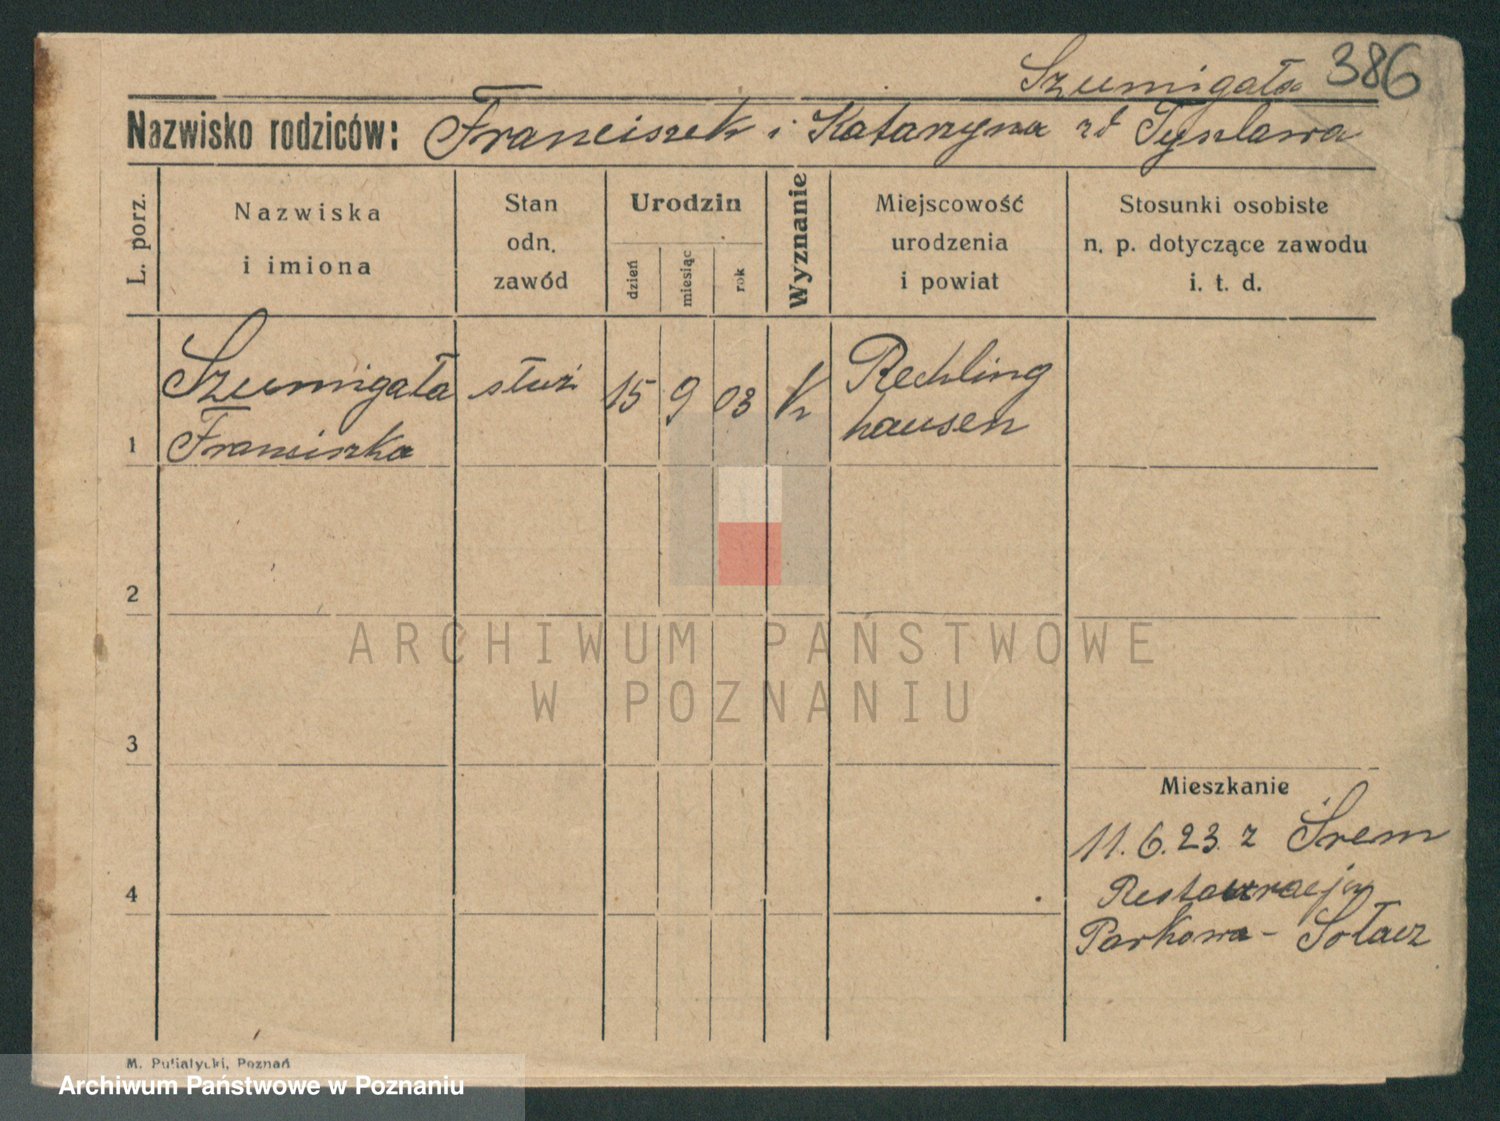 Szumigała 386
Nazwisko rodziców: Franciszek i Katarzyna zd Tyslawa
L. porz.
Nazwiska
i imiona
Stan
odn.
zawód
Urodzin
dzień
miesiąc
rok
Wyznanie
Miejscowość
urodzenia
i powiat
Stosunki osobiste
n. p. dotyczące zawodu
i. t. d.
1
Szumigała
Franciszka
służ
15
9
03
K
Rechling
hausen
2
ARCHIWUM PAŃSTWOWE
W POZNANIU
3
Mieszkanie
11. 6. 23. z Śrem
4
Restauracja
Parkowa - Sołacz
M. Putiatycki, Poznań
Archiwum Państwowe w Poznaniu